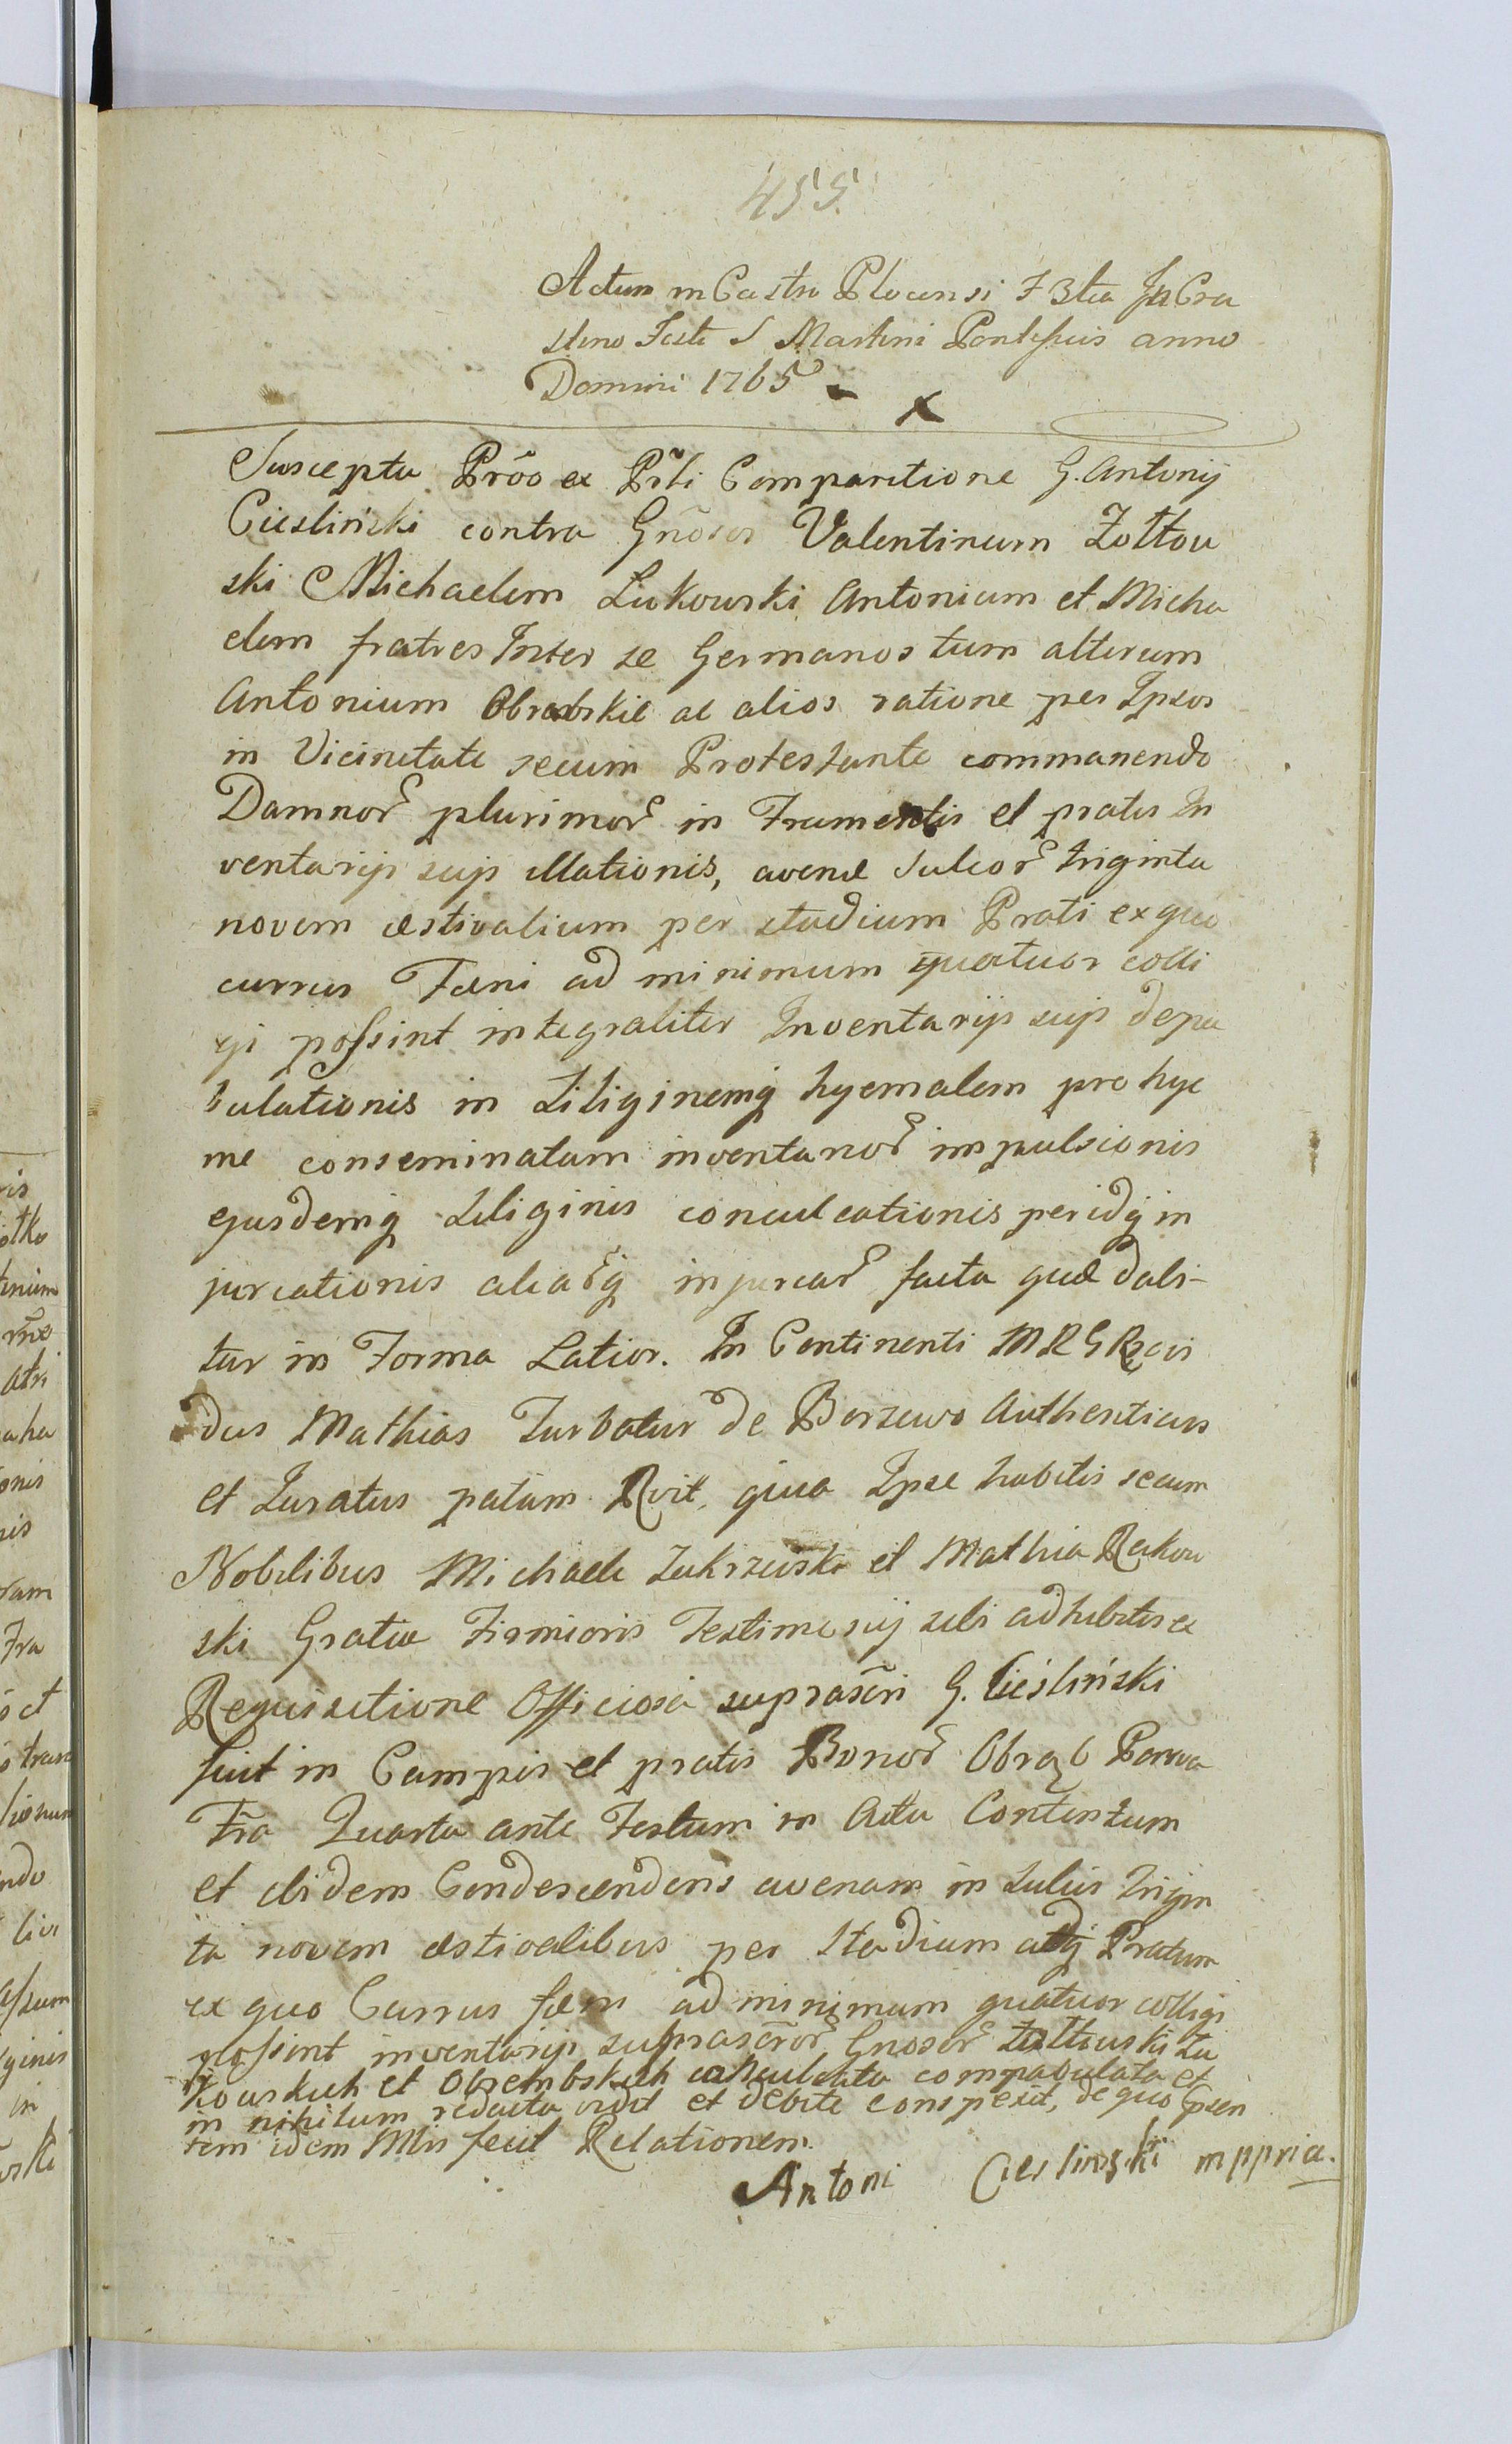 455.
Actum in Castro Plocensi F 3tia In Cra
stino Festi S Martini Pontificis anno
Domini 1765 - x
Suscepta Prõo ex Prli Comparitione G. Antonij
Cieslinski contra Gñosos Valentinum Zołtow
ski Michaelem Lukowski Antonium et Micha
elem fratres Inter se Germanos tum alterum
Antonium Obrembskie ac alios ratione per Ipsos
in Vicinitate secum Protestante commanendo
Damnor plurimor in Frumentis et pratis In
ventarijs suis illationis, avenæ Sulcor triginta
novem æstivalium per stadium Prati ex quo
currus Fæni ad minimum quatuor colli
gi possint integraliter Inventarijs suis depa
bulationis in Siliginemq hyemalem pro hye
me conseminatam inventarior impulsionis
ejusdemq Siliginis conculcationis peridq in
juriationis aliarq injuriar facta quæ dabi-
tur in Forma Latior. In Continenti MRG Rcvi
dus Mathias Turbatur de Borzewo Authenticus
et Juratus palam Rvit, quia Ipse habitis secum
Nobilibus Michaele Zukrzewski et Mathia Rakow
ski Gratia Firmioris Testimonij sibi adhibitis ex
Requisitione Officiosa suprascri G. Cieśliński
fuit in Campis et pratis Bonor Obrąb Parwa
Fria Quarta ante Festum in Actu Contentum
et ibidem Condescendens avenam in Sulcis trigin
ta novem æstivalibus per Stadium adq Pratum
ex quo Currus fæni ad minimum quatuor colligi
possint inventarijs suprascror Gnosor Zołtowski Lu
kowskich et Obrembskich conculcata compabulata et
in nihilum redacta vidit et debite conspexit, de quo Præsen
tem idem Mis fecit Relationem.
Antoni Cieslinski mppria.